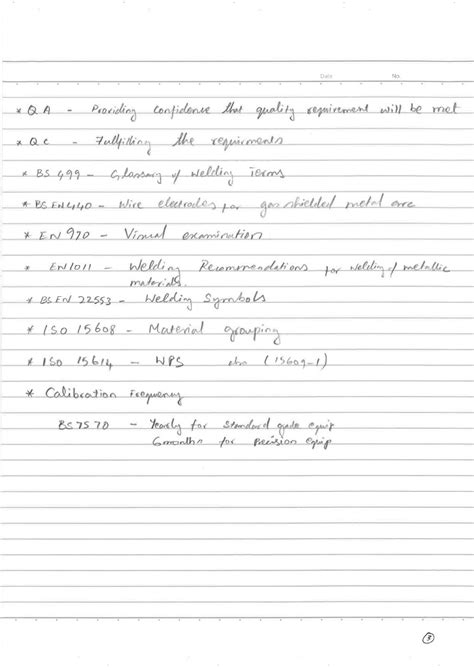 Date No.
* QA - Providing confidence that quality requirement will be met
* QC - Fullfilling the requirments
* BS 499 - Glossary of Welding Terms
* BS EN 440 - Wire electrodes for gas shielded metal arc
* EN 970 - Visual examination
* EN 1011 - Welding Recommendations for welding of metallic
materials.
* BS EN 22553 - Welding Symbols
* ISO 15608 - Material grouping
* ISO 15614 - WPS (15609-1)
* Calibration Frequency
BS 7570 - Yearly for standard grade equip
6 months for precision equip